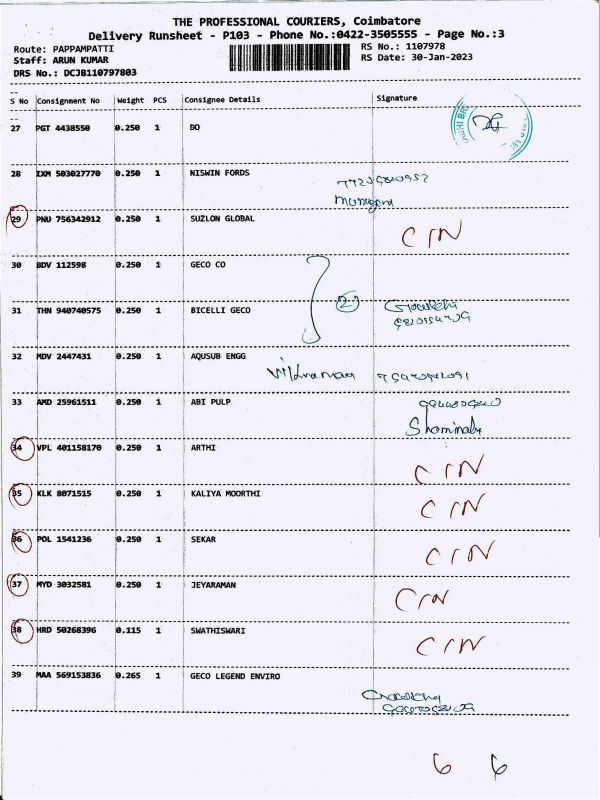 THE PROFESSIONAL COURIERS, Coimbatore
Delivery Runsheet - P103 - Phone No.:0422-3505555 - Page No.:3
Route: PAPPAMPATTI
Staff: ARUN KUMAR
DRS No.: DCJB110797803
RS No.: 1107978
RS Date: 30-Jan-2023
S No Consignment No Weight PCS Consignee Details Signature
27 PGT 4438550 0.250 1 DO
28 IXM 503027770 0.250 1 NISWIN FORDS
29 PNU 756342912 0.250 1 SUZLON GLOBAL
C/N
30 BDV 112598 0.250 1 GECO CO
31 THN 940740575 0.250 1 BICELLI GECO
2
32 MDV 2447431 0.250 1 AQUSUB ENGG
33 AMD 25961511 0.250 1 ABI PULP
34 VPL 401158170 0.250 1 ARTHI
C/N
35 KLK 8071515 0.250 1 KALIYA MOORTHI
C/N
36 POL 1541236 0.250 1 SEKAR
C/N
37 MYD 3032581 0.250 1 JEYARAMAN
C/N
38 HRD 50268396 0.115 1 SWATHISWARI
C/N
39 MAA 569153836 0.265 1 GECO LEGEND ENVIRO
6 6